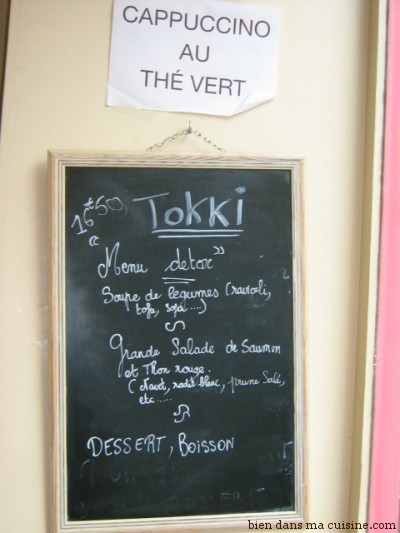 CAPPUCCINO
AU
THÉ VERT
16€50
Tokki
"Menu detox"
Soupe de légumes (ravioli,
tofu, soja ....)
Grande Salade de Saumon
et Thon rouge.
(Navet, radis blanc, prune Salé,
etc .....
DESSERT, BOISSON
bien dans ma cuisine.com